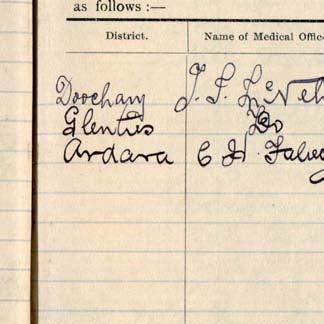 as follows :—
District. Name of Medical Office
Doochary J. S.
Glenties Do
Ardara C H. Falvey